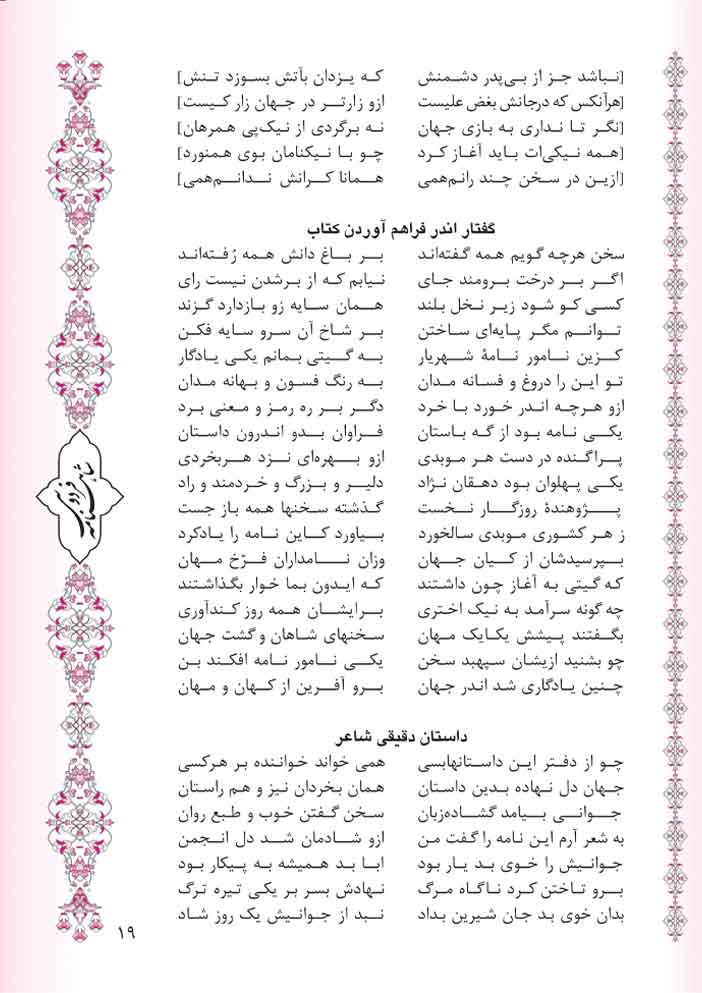 [نباشد جز از بی‌پدر دشمنش که یزدان بآتش بسوزد تنش]
[هرآنکس که درجانش بغض علیست ازو زارتر در جهان زار کیست]
[نگر تا نداری به بازی جهان نه برگردی از نیک‌پی همرهان]
[همه نیکی‌ات باید آغاز کرد چو با نیکنامان بوی همنورد]
[ازین در سخن چند رانم‌همی همانا کرانش ندانم‌همی]
گفتار اندر فراهم آوردن کتاب
سخن هرچه گویم همه گفته‌اند بر باغ دانش همه رُفته‌اند
اگر بر درخت برومند جای نیابم که از برشدن نیست رای
کسی کو شود زیر نخل بلند همان سایه زو بازدارد گزند
توانم مگر پایه‌ای ساختن بر شاخ آن سرو سایه فکن
کزین نامور نامهٔ شهریار به گیتی بمانم یکی یادگار
تو این را دروغ و فسانه مدان به رنگ فسون و بهانه مدان
ازو هرچه اندر خورد با خرد دگر بر ره رمز و معنی برد
یکی نامه بود از گه باستان فراوان بدو اندرون داستان
پراگنده در دست هر موبدی ازو بهره‌ای نزد هربخردی
یکی پهلوان بود دهقان نژاد دلیر و بزرگ و خردمند و راد
پژوهندهٔ روزگار نخست گذشته سخنها همه باز جست
ز هر کشوری موبدی سالخورد بیاورد کاین نامه را یادکرد
بپرسیدشان از کیان جهان وزان نامداران فرّخ مهان
که گیتی به آغاز چون داشتند که ایدون بما خوار بگذاشتند
چه گونه سرآمد به نیک اختری برایشان همه روز کندآوری
بگفتند پیشش یکایک مهان سخنهای شاهان و گشت جهان
چو بشنید ازیشان سپهبد سخن یکی نامور نامه افکند بن
چنین یادگاری شد اندر جهان برو آفرین از کهان و مهان
داستان دقیقی شاعر
چو از دفتر این داستانهابسی همی خواند خواننده بر هرکسی
جهان دل نهاده بدین داستان همان بخردان نیز و هم راستان
جوانی بیامد گشاده‌زبان سخن گفتن خوب و طبع روان
به شعر آرم این نامه را گفت من ازو شادمان شد دل انجمن
جوانیش را خوی بد یار بود ابا بد همیشه به پیکار بود
برو تاختن کرد ناگاه مرگ نهادش بسر بر یکی تیره ترگ
بدان خوی بد جان شیرین بداد نبد از جوانیش یک روز شاد
شاهنامه فردوسی
۱۹